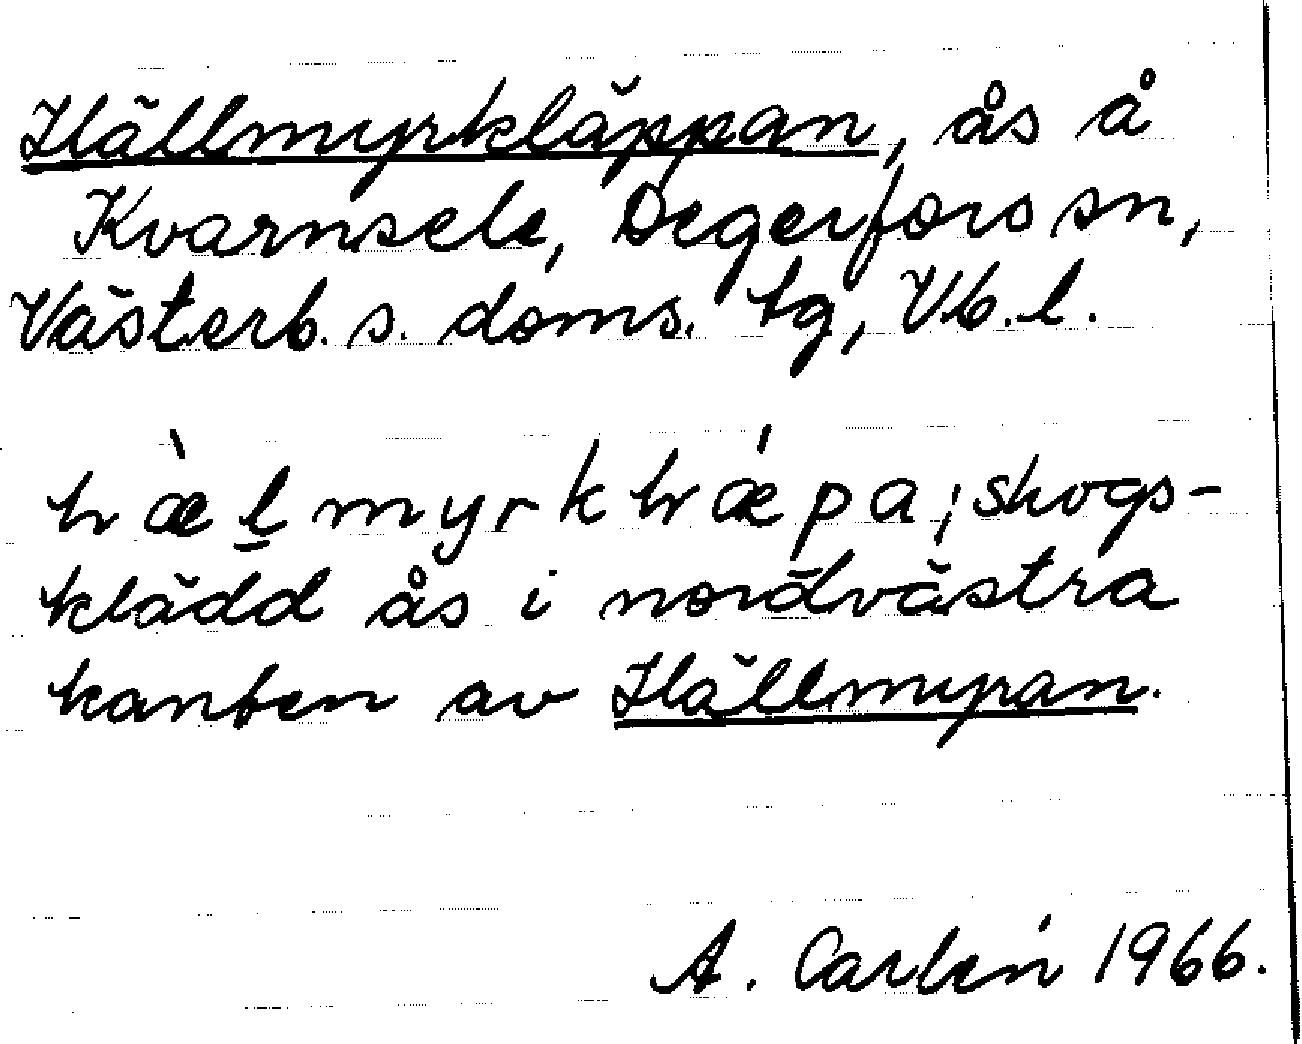 Hällmyrkläppan, ås å
Kvarnsele, Degerfors sn,
Västerb. s. doms. tg, Vb. l.
hæ̀l̲myrkhǽpa; skogs-
klädd ås i nordvästra
kanten av Hällmyran.
A. Carlén 1966.